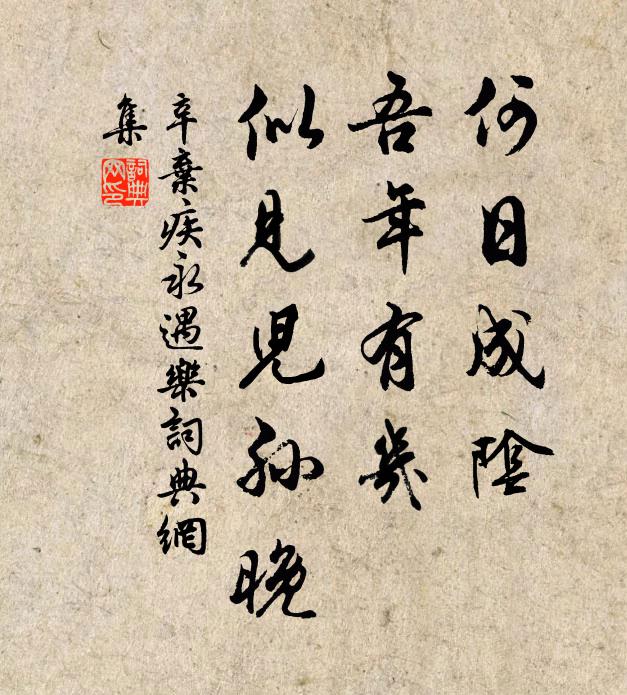 何日成陰
吾年有幾
似見兒孫晚
辛棄疾永遇樂詞典網
集
詞典
网印